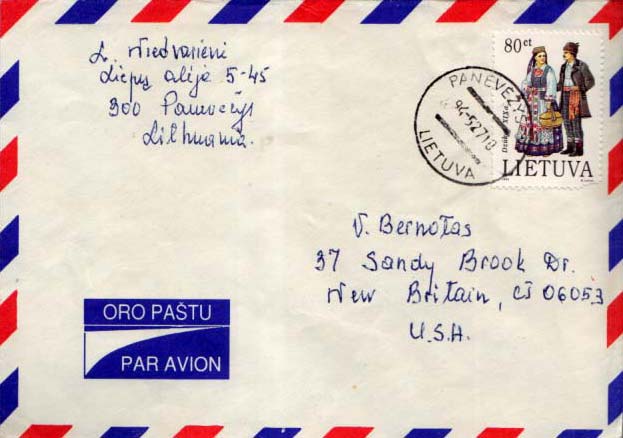 L. Niedvarieni
Liepų alėja 5-45
300 Panevėžys
Lithuania.
80 ct
PANEVĖŽYS
94-527 18
LIETUVA
LIETUVA
V. Bernotas
37 Sandy Brook Dr.
New Britain, CT 06053
U.S.A.
ORO PAŠTU
PAR AVION